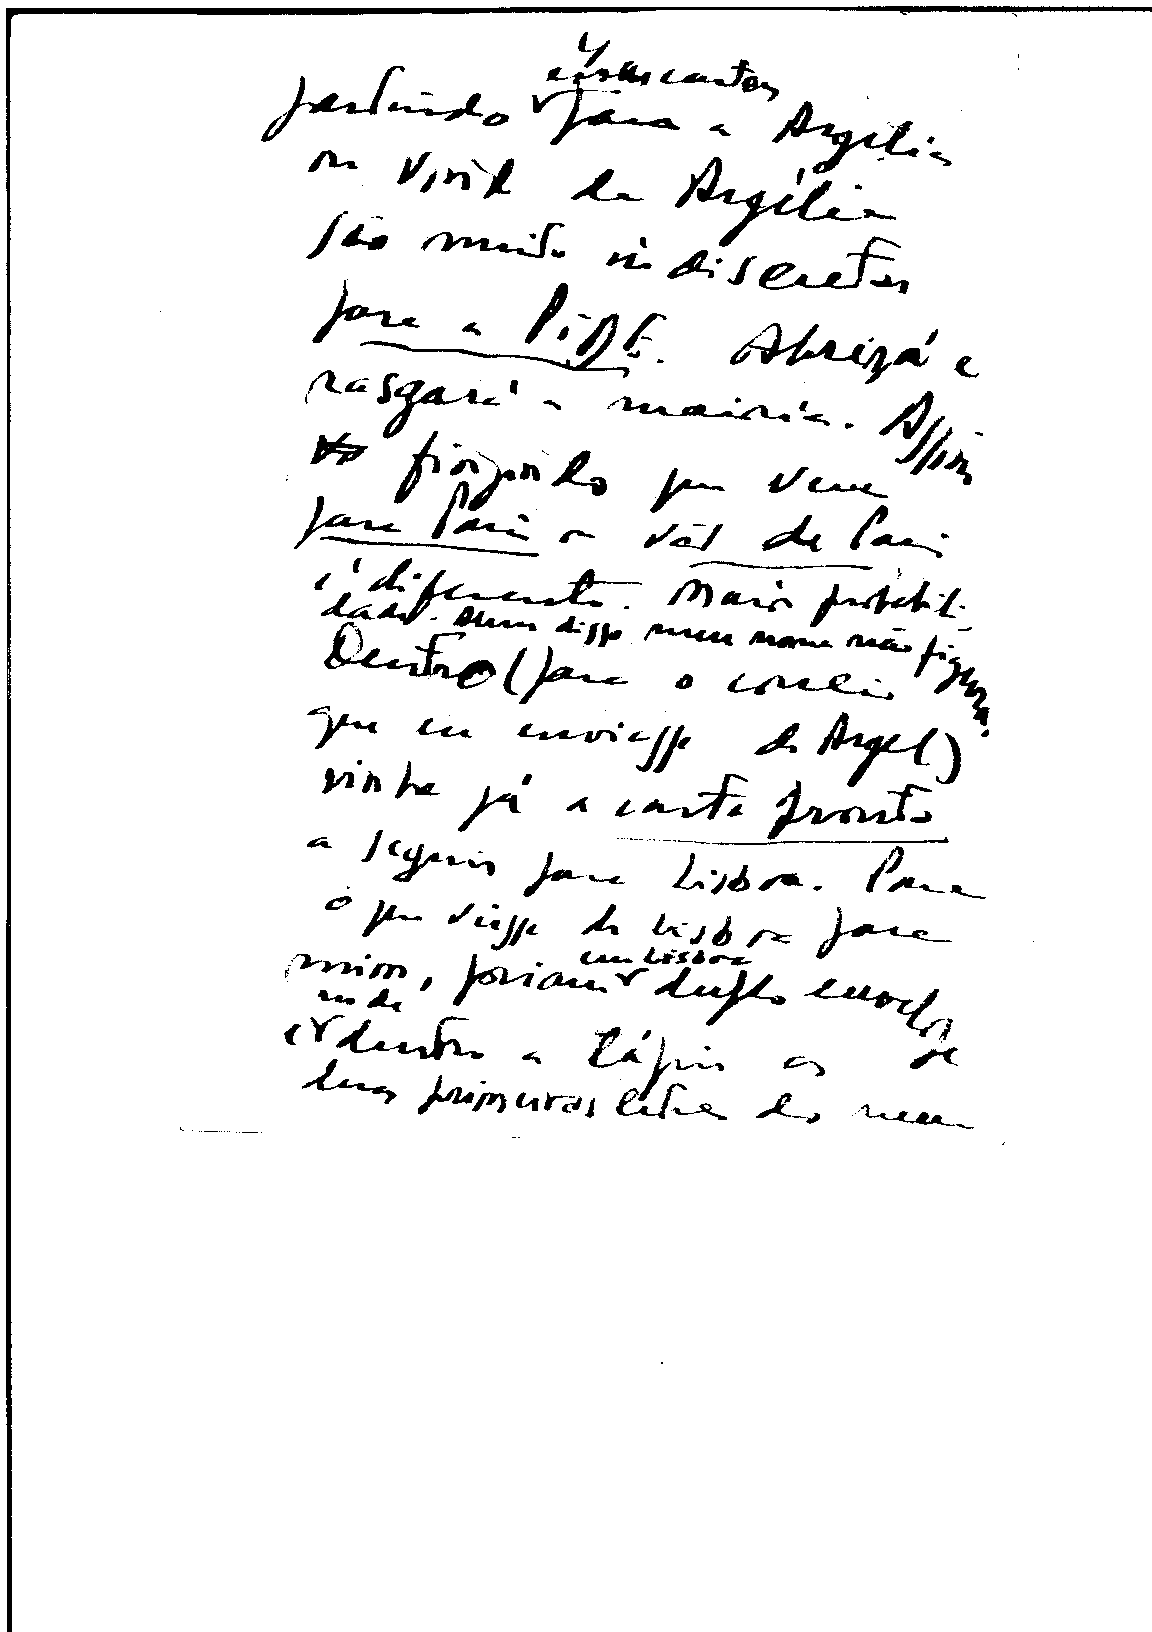 essas cartas
partindo para a Argélia
ou vindo da Argélia
são muito indiscretas
para a PIDE. Abrirá e
rasgará a maioria. Assim
fingindo que vem
para Paris ou vão de Paris
é diferente. Mais probabili-
dades. Além disso meu nome não figura.
Dentro (para o correio
que eu enviasse de Argel)
vinha já a carta pronta
a seguir para Lisboa. Para
o que viesse de Lisboa para
em Lisboa
mim, poriam duplo envelope
no de
e dentro a lápis as
duas primeiras letras do meu